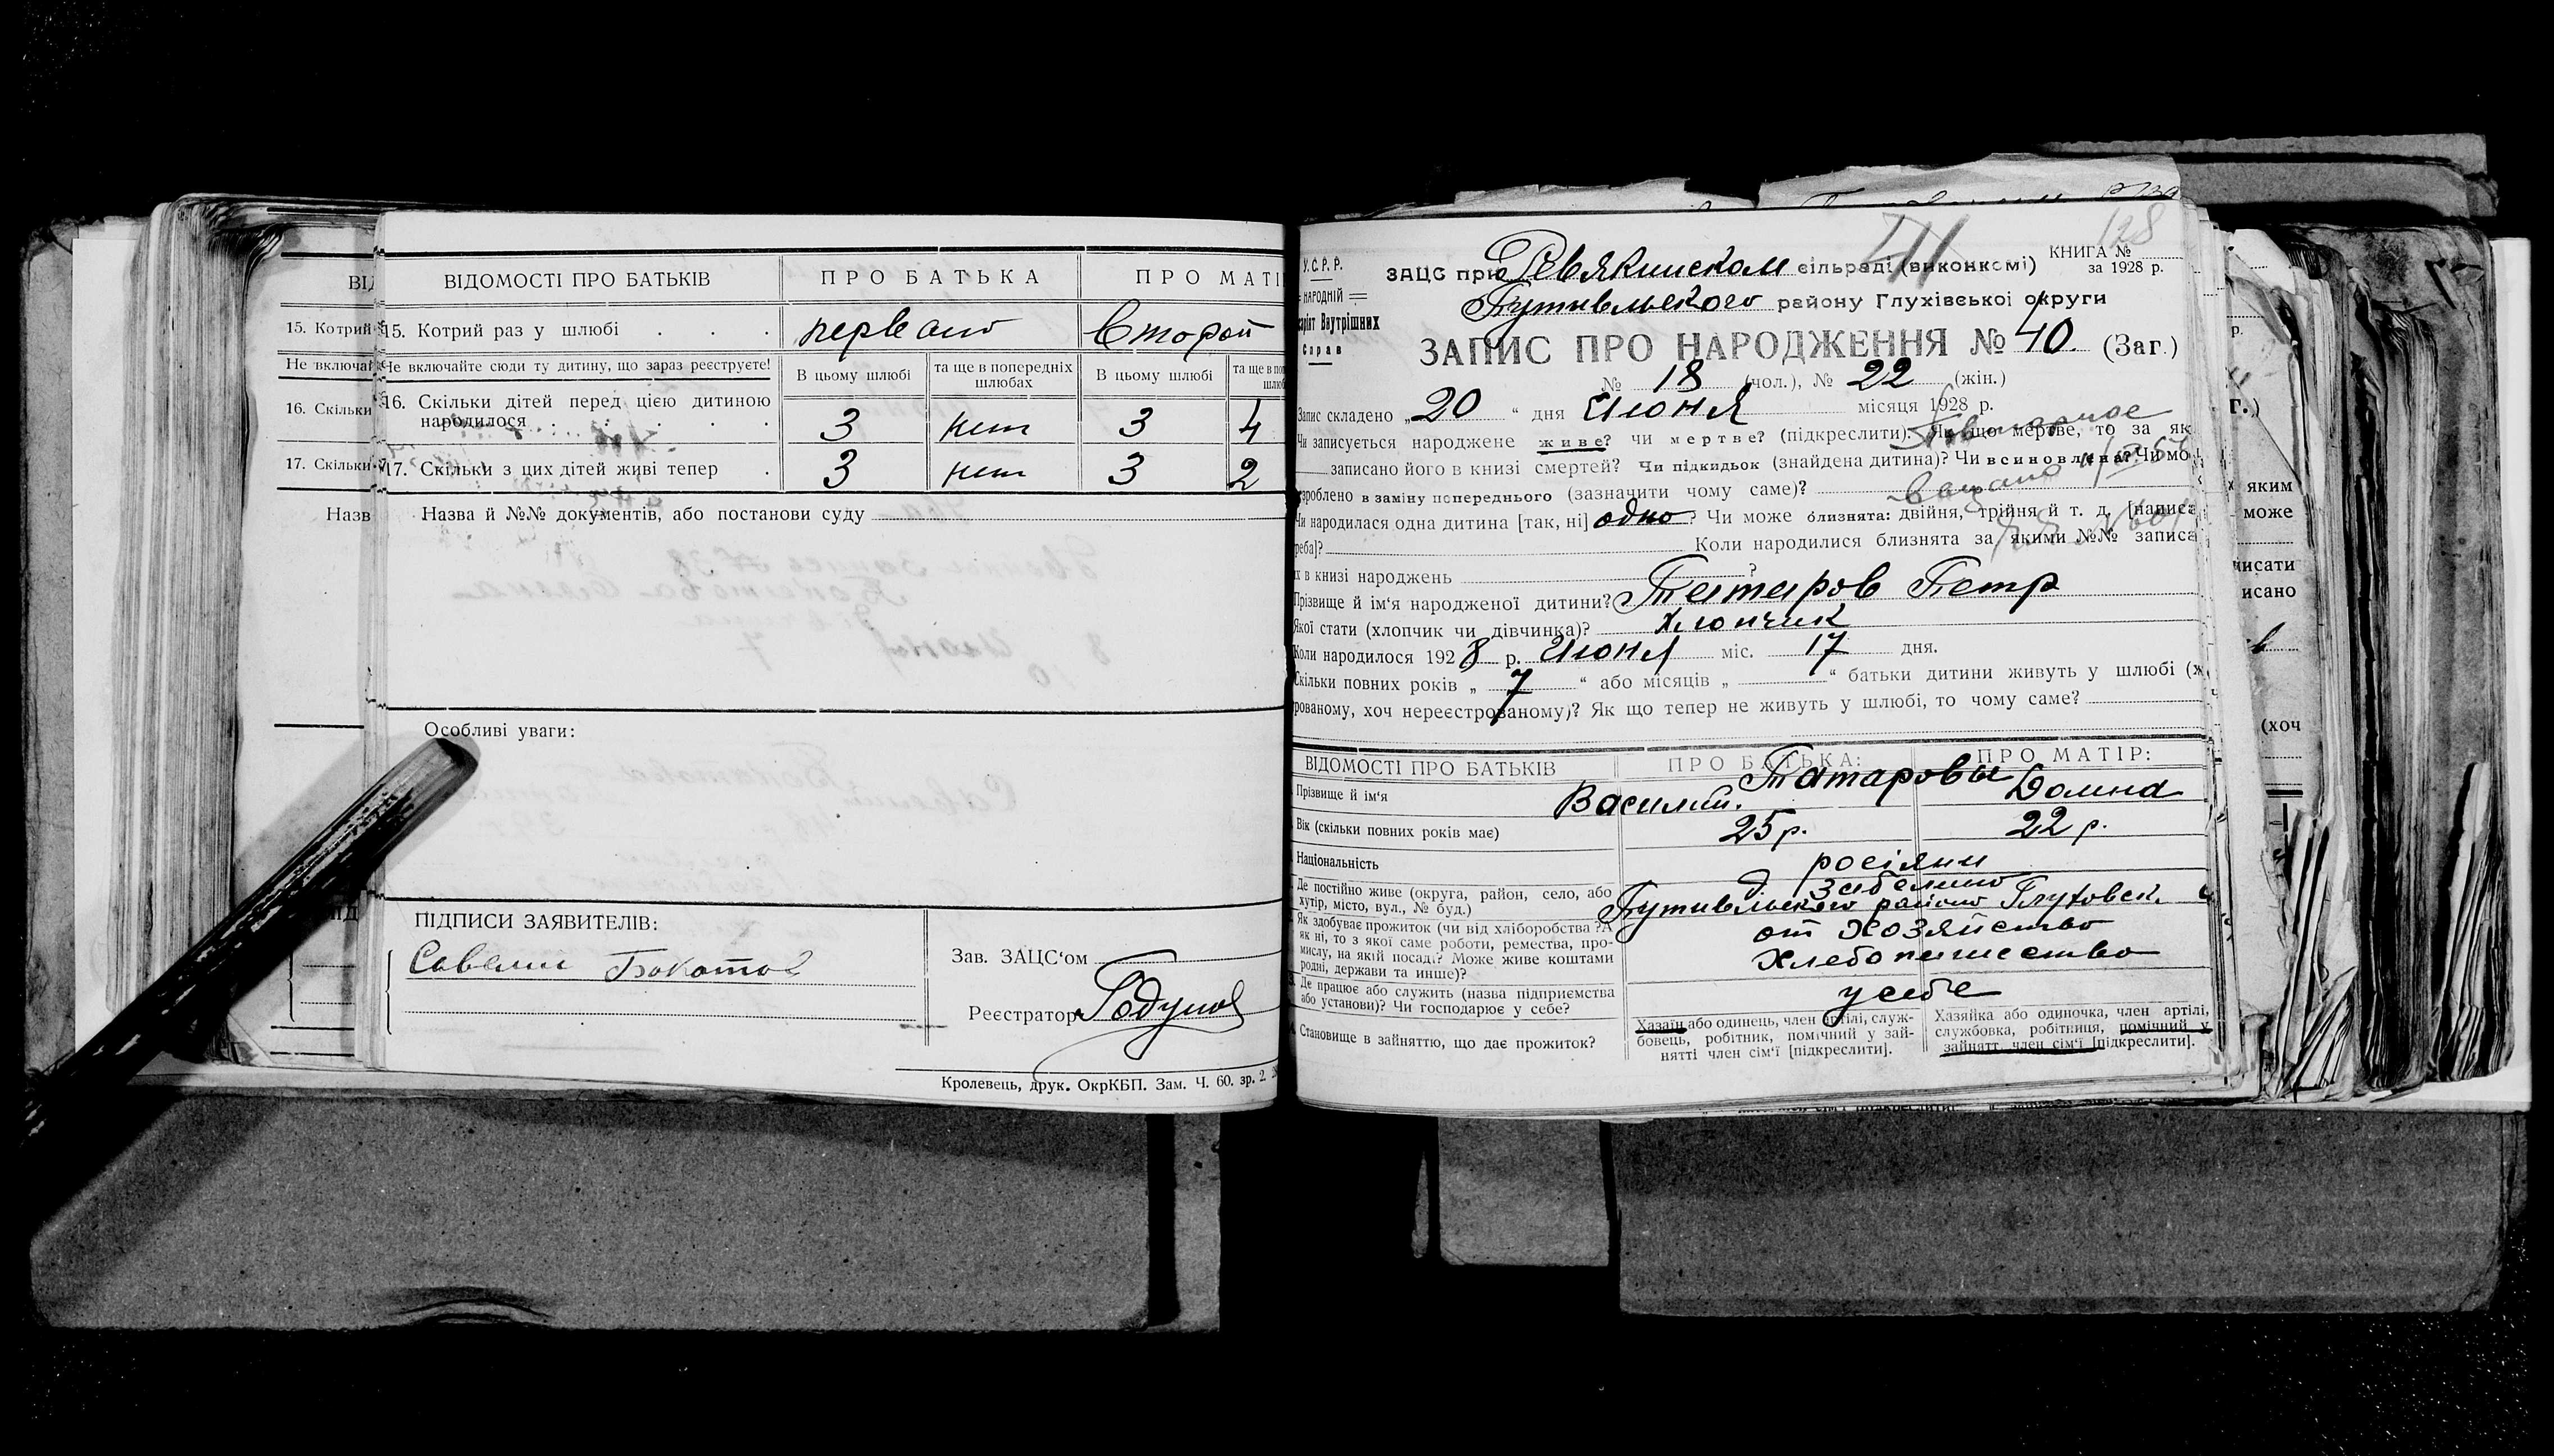 ВІДОМОСТІ ПРО БАТЬКІВ
ПРО БАТЬКА
ПРО МАТІ
15. Котрий раз у шлюбі . . .
первый
второй
Не включайте сюди ту дитину, що зараз реєструєте!
В цьому шлюбі
та ще в попередніх шлюбах
В цьому шлюбі
16. Скільки дітей перед цією дитиною народилося . . . . .
3
нет
3
4
17. Скільки з цих дітей живі тепер .
3
нет
3
2
Назва й №№ документів, або постанови суду
Особливі уваги:
ПІДПИСИ ЗАЯВИТЕЛІВ:
Савелий Бокатов
Зав. ЗАЦС‘ом
Реєстратор Годунов
Кролевець, друк. ОкрКБП. Зам. Ч. 60. зр. 2.
У.С.Р.Р.
НАРОДНІЙ
Внутрішних
Справ
41
128
КНИГА №
за 1928 р.
ЗАЦС при Ревякинском сільраді (виконкомі)
Путивльского району Глухівської округи
ЗАПИС ПРО НАРОДЖЕННЯ № 40. (Заг.)
№ 18 (чол.), № 22 (жін.)
Запис складено „ 20 “ дня Июня місяця 1928 р.
Чи записується народжене живе? чи мертве? (підкреслити). Як що мертве, то за як
записано його в книзі смертей? Чи підкидьок (знайдена дитина)? Чи всиновлена? Чи мо
зроблено в заміну попереднього (зазначити чому саме)?
Повторное
Чи народилася одна дитина [так, ні] одно? Чи може близнята: двійня, трійня й т. д. [написа
треба]? Коли народилися близнята за якими №№ записа
їх в книзі народжень ?
Прізвище й ім‘я народженої дитини? Татаров Петр
Якої стати (хлопчик чи дівчинка)? Хлопчик
Коли народилося 1928 р. Июня міс. 17 дня.
Скільки повних років „ 7 “ або місяців „ “ батьки дитини живуть у шлюбі (
рованому, хоч нереєстрованому)? Як що тепер не живуть у шлюбі, то чому саме?
ВІДОМОСТІ ПРО БАТЬКІВ
ПРО БАТЬКА:
ПРО МАТІР:
Прізвище й ім‘я
Татаровы
Василий.
Домна
Вік (скільки повних років має)
25 р.
22 р.
Національність
росіяни
Де постійно живе (округа, район, село, або хутір, місто, вул., № буд.)
Забелино
Путивльского району Глуховск.
Як здобуває прожиток (чи від хліборобства? А як ні, то з якої саме роботи, ремества, промислу, на якій посаді? Може живе коштами родні, держави та инше)?
от Хозяйство
Хлебопашество
Де працює або служить (назва підприємства або установи)? Чи господарює у себе?
у себе
Становище в зайняттю, що дає прожиток?
Хазаїн або одинець, член артілі, службовець, робітник, помічний у зайнятті член сім‘ї [підкреслити].
Хазяйка або одиночка, член артілі, службовка, робітниця, помічний у зайнятт. член сім‘ї [підкреслити].